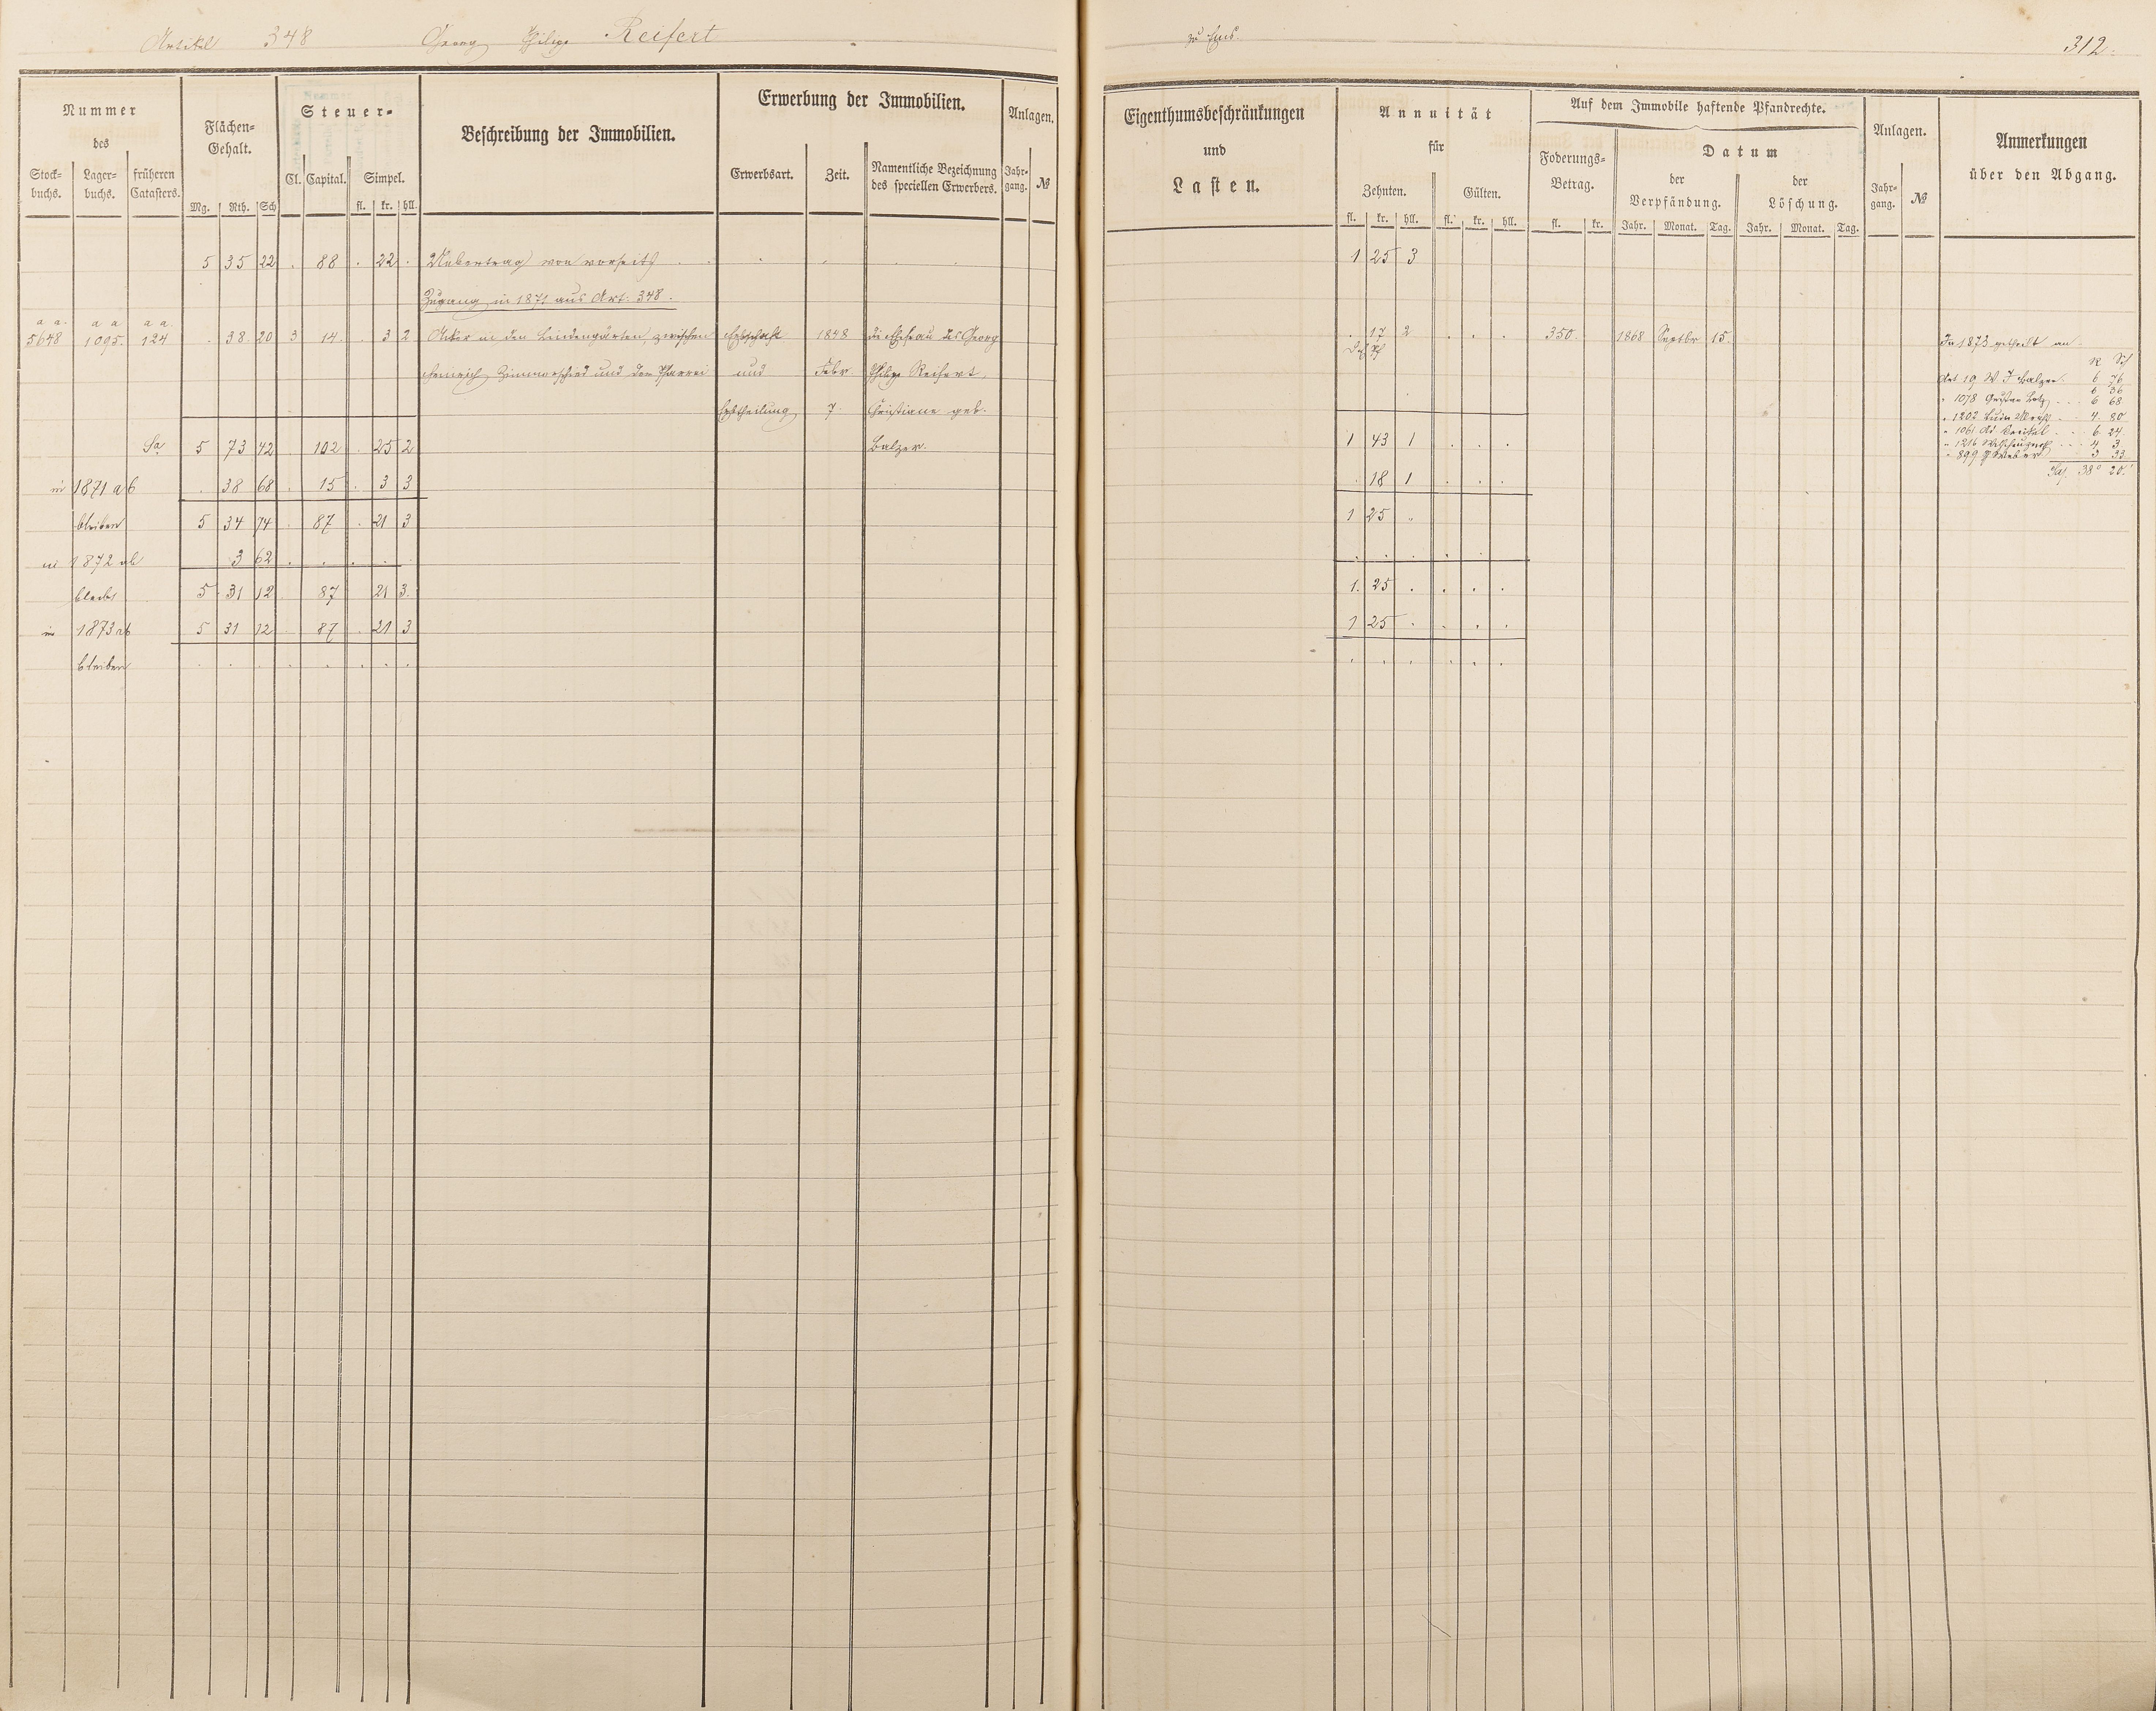 Artikel 348 Georg Philipp Reifert
zu Ems. 312.
Nummer
des
Stock-
buchs.
Lager-
buchs.
früheren
Catasters.
Flächen-
Gehalt.
Mg. Rth. Sch
Steuer-
Cl. Capital. Simpel.
fl. kr. hll.
Beschreibung der Immobilien.
Erwerbung der Immobilien.
Erwerbsart. Zeit.
Namentliche Bezeichnung
des speciellen Erwerbers.
Anlagen.
Jahr-
gang. №
5 35 22 . 88 . 22 . Uebertrag von vorseits
Zugang in 1871 aus Art. 348.
a a. a a a a.
5648 1095. 124 . 38 20 3 14 . 3 2 Acker in den Lindengärten, zwischen Erbschaft 1848 die Ehefrau des Georg
Heinrich Zimmerschied und der Pfarrei und Febr Philipp Reifert,
Erbtheilung 7. Christiane geb.
Sa 5 73 42 102 . 25 2 Balzer.
in 1871 ab . 38 68 . 15 . 3 3
bleiben 5 34 74 . 87 . 21 3
in 1872 ab 3 62 . . . . .
bleibt 5 31 12 87 21 3.
in 1873 ab 5 31 12 . 87 . 21 3
bleiben . . . . . . . .
Eigenthumsbeschränkungen
und
Lasten.
Annuität
für
Zehnten. Gülten.
fl. kr. hll. fl. kr. hll.
Auf dem Immobile haftende Pfandrechte.
Foderungs-
Betrag.
fl. kr.
Datum
der
Verpfändung.
der
Löschung.
Jahr. Monat. Tag. Jahr. Monat. Tag.
Anlagen.
Jahr-
gang. №
Anmerkungen
über den Abgang.
1 25 3
. 17 2 . . . 350. 1868 Septbr 15.
1 43 1 . . .
. 18 1 . . .
1 25 .
. . . . .
1. 25 . . . .
1 25 . . . .
. . . . . .
In 1873 getheilt an
R Sch
Art 19 W. J. Balzer. 6 76
6 36
" 1078 6 68
" 1202 4. 80
" 1061 6 24
" 1216 4 3
" 899 3 33
38° 20.'